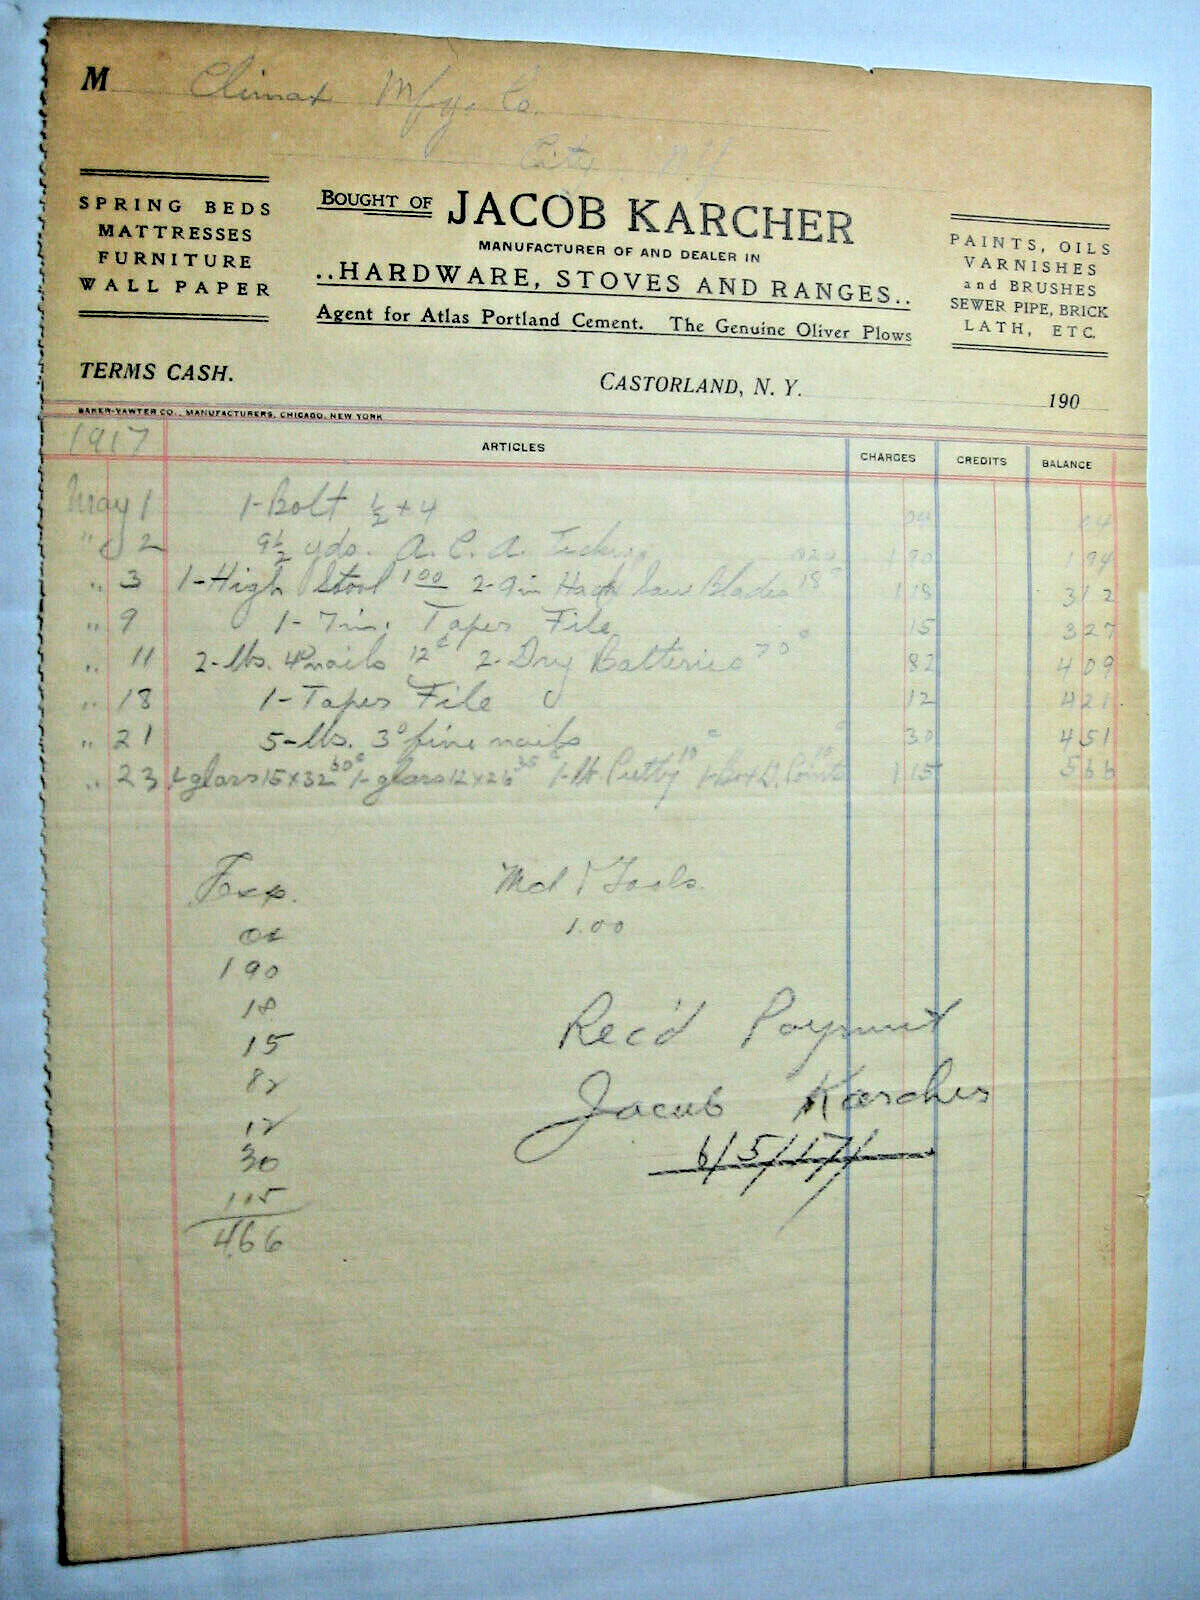 M Climax Mfg. Co.
City N.Y
SPRING BEDS
MATTRESSES
FURNITURE
WALL PAPER
BOUGHT OF JACOB KARCHER
MANUFACTURER OF AND DEALER IN
..HARDWARE, STOVES AND RANGES..
Agent for Atlas Portland Cement. The Genuine Oliver Plows
PAINTS, OILS
VARNISHES
and BRUSHES
SEWER PIPE, BRICK
LATH, ETC.
TERMS CASH.
CASTORLAND, N. Y. 190
BAKER-VAWTER CO., MANUFACTURERS, CHICAGO, NEW YORK
1917 ARTICLES CHARGES CREDITS BALANCE
May 1 1-Bolt ½ + 4 04 04
" 2 9½ yds. A. C. A. 1 90 1 94
" 3 1-High Stool 1 00 2-9in Hack Saw Blades 18 1 18 3 12
" 9 1-7in. Taper File 15 3 27
" 11 2-lbs. 4d nails 12c 2-Dry Batteries 70c 82 4 09
" 18 1-Taper File 12 4 21
" 21 5-lbs. 3d fine nails 30 4 51
" 23 1-glass 15x32 60c 1-glass 12x26 35c 1-lb Putty 10c 1-Box D. Points 10 1 15 5 66
Fexp.
Mch & Tools.
04
1.00
1 90
18
15
82
12
30
1 15
4.66
Rec'd Payment
Jacob Karcher
6/5/17/